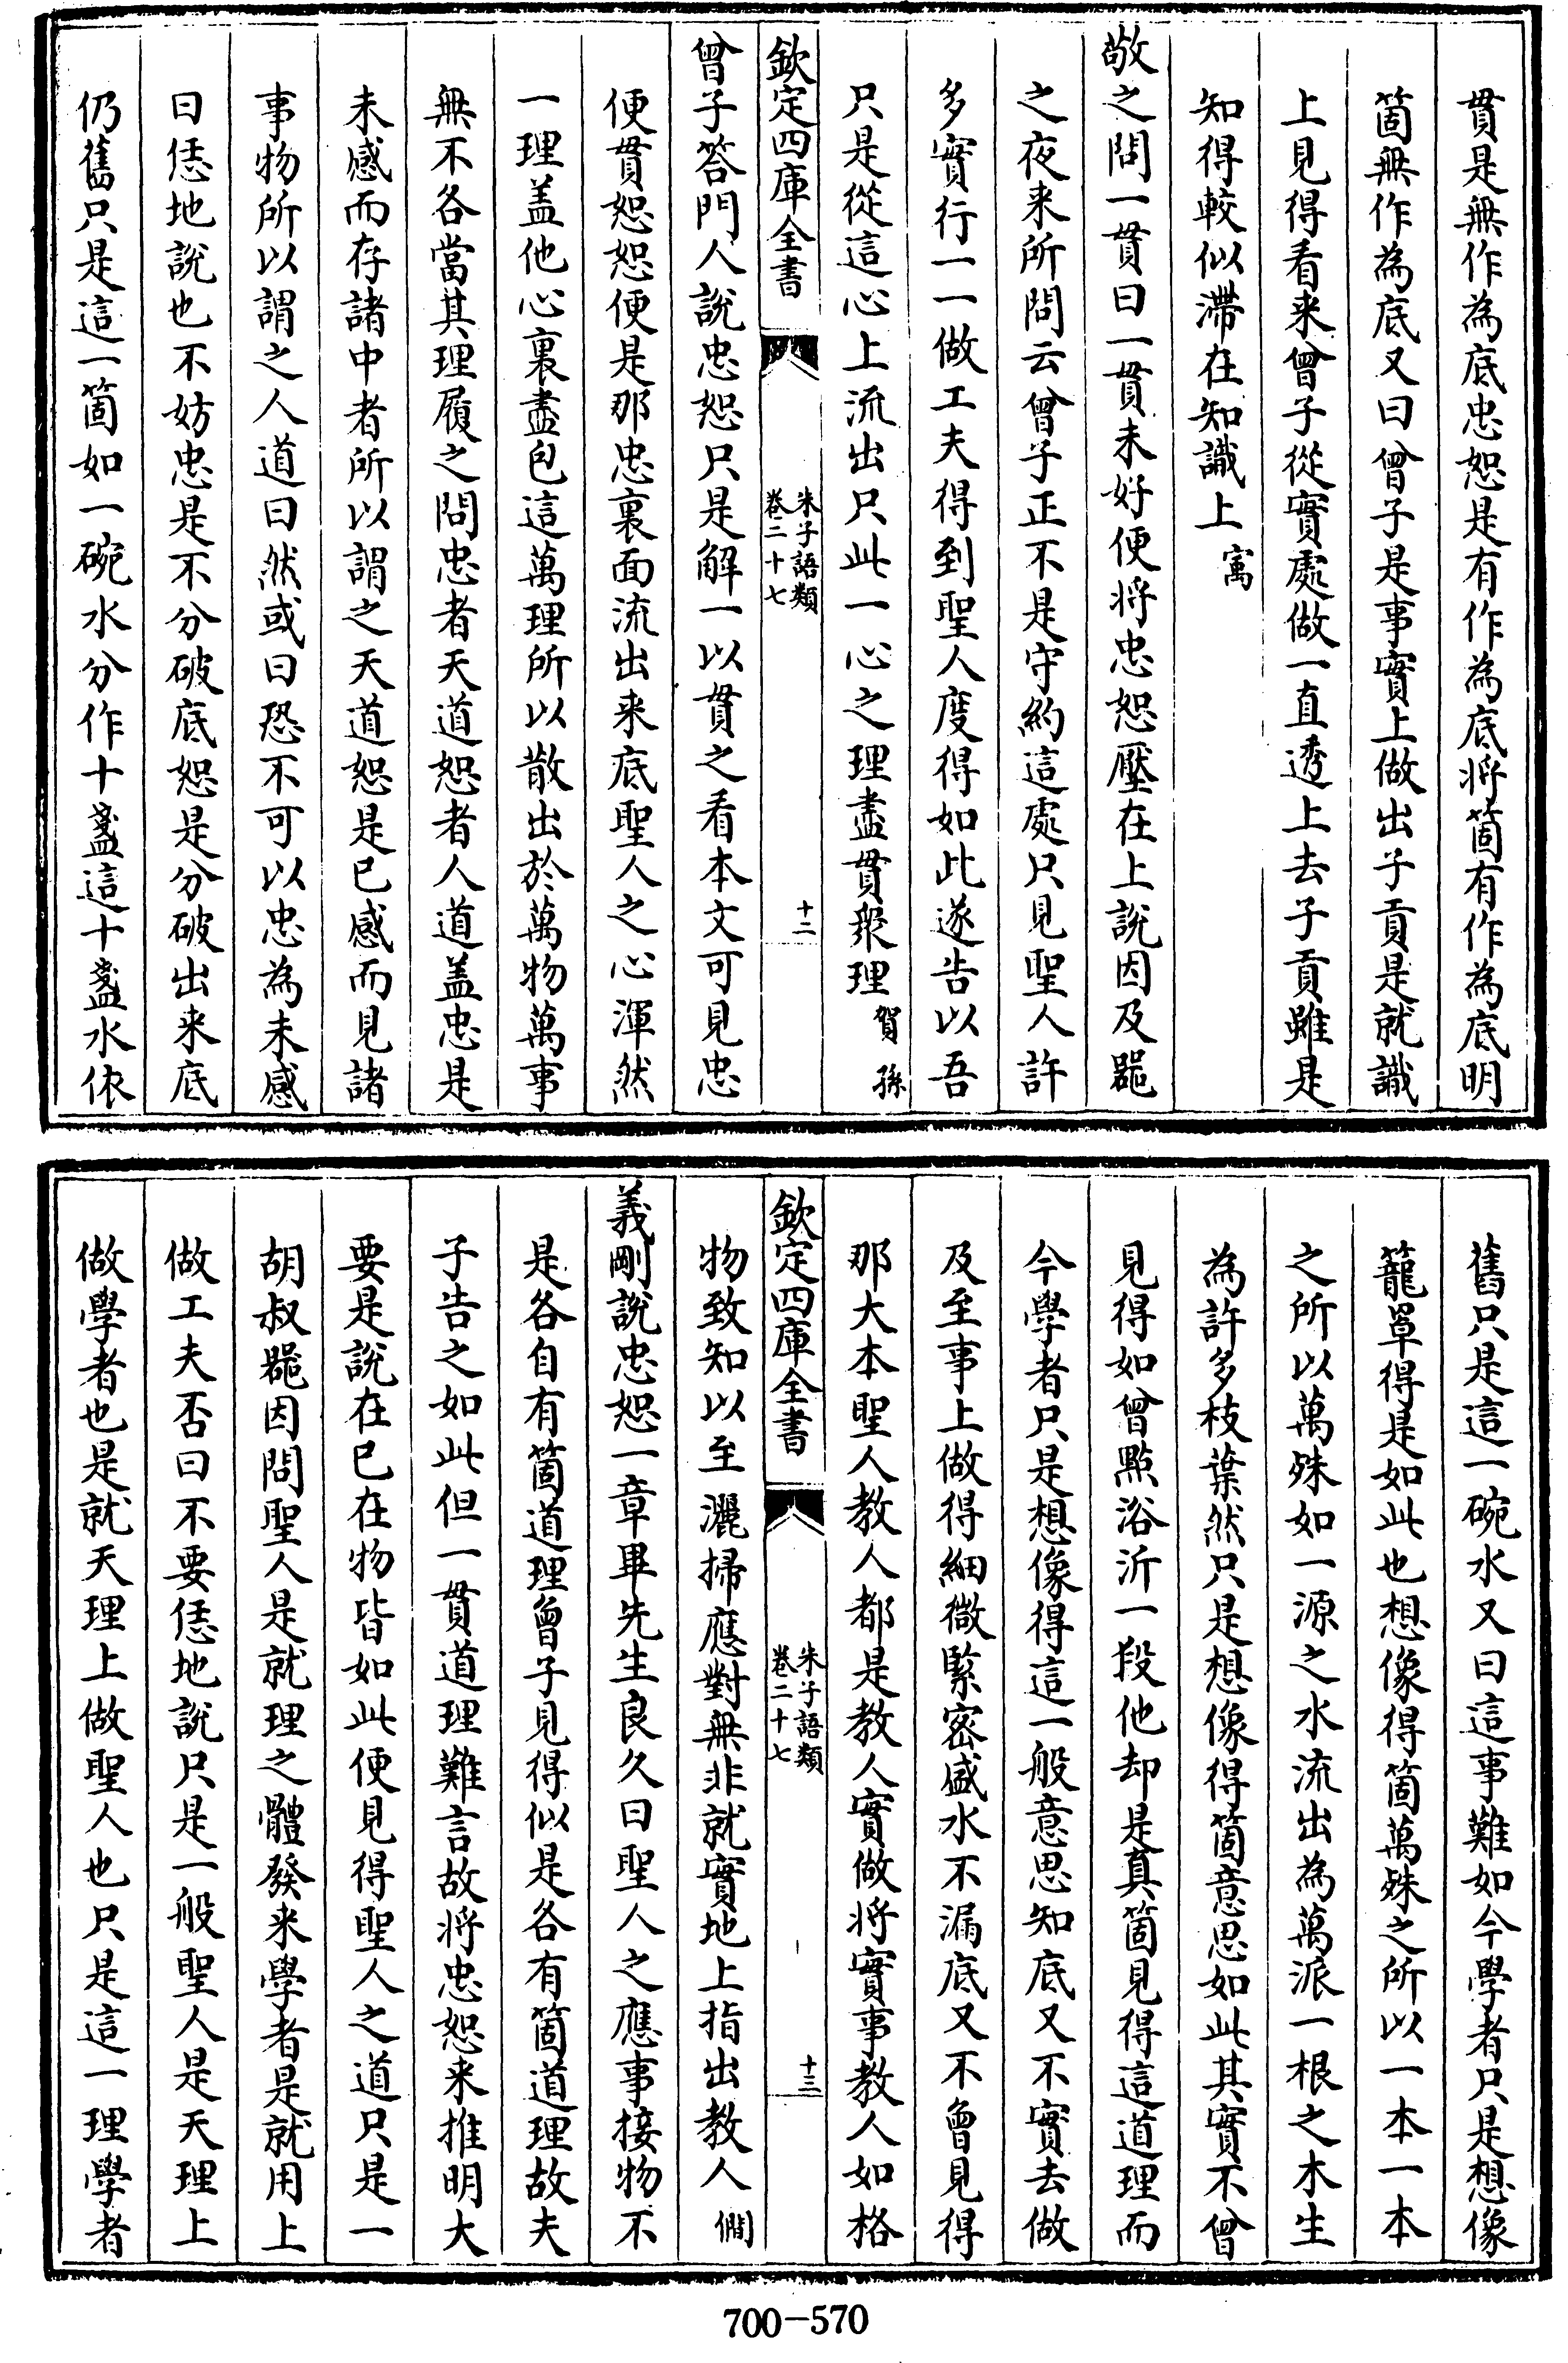 貫是無作為底忠恕是有作為底將箇有作為底明
箇無作為底又曰曾子是事實上做出子貢是就識
上見得看來曾子從實處做一直透上去子貢雖是
知得較似滯在知識上寓
敬之問一貫曰一貫未好便將忠恕壓在上說因及器
之夜来所問云曾子正不是守約這處只見聖人許
多實行一一做工夫得到聖人度得如此遂告以吾
只是從這心上流出只此一心之理盡貫衆理賀孫
欽定四庫全書
朱子語類
卷二十七
十二
曾子答門人說忠恕只是解一以貫之看本文可見忠
便貫恕恕便是那忠裏面流出来底聖人之心渾然
一理盖他心裏盡包這萬理所以散出於萬物萬事
無不各當其理履之問忠者天道恕者人道盖忠是
未感而存諸中者所以謂之天道恕是已感而見諸
事物所以謂之人道曰然或曰恐不可以忠為未感
曰恁地說也不妨忠是不分破底恕是分破出来底
仍舊只是這一箇如一碗水分作十盞這十盞水依
舊只是這一碗水又曰這事難如今學者只是想像
籠罩得是如此也想像得箇萬殊之所以一本一本
之所以萬殊如一源之水流出為萬派一根之木生
為許多枝葉然只是想像得箇意思如此其實不曾
見得如曾點浴沂一段他却是真箇見得這道理而
今學者只是想像得這一般意思知底又不實去做
及至事上做得細微緊密盛水不漏底又不曾見得
那大本聖人教人都是教人實做將實事教人如格
欽定四庫全書
朱子語類
卷二十七
十三
物致知以至灑掃應對無非就實地上指出教人僩
義剛說忠恕一章畢先生良久曰聖人之應事接物不
是各自有箇道理曾子見得似是各有箇道理故夫
子告之如此但一貫道理難言故將忠恕来推明大
要是說在已在物皆如此便見得聖人之道只是一
胡叔器因問聖人是就理之體發来學者是就用上
做工夫否曰不要恁地說只是一般聖人是天理上
做學者也是就天理上做聖人也只是這一理學者
700-570